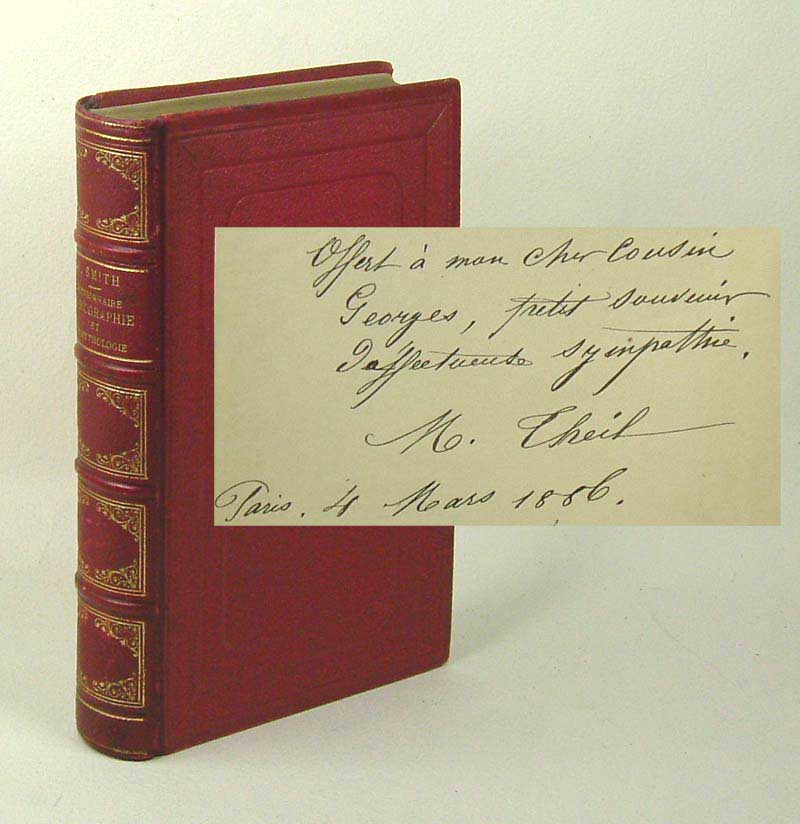 SMITH
DICTIONNAIRE
BIOGRAPHIE
ET
MYTHOLOGIE
Offert à mon cher Cousin
Georges, petit souvenir
D'affectueuse sympathie.
M. Theil
Paris. 4 Mars 1886.